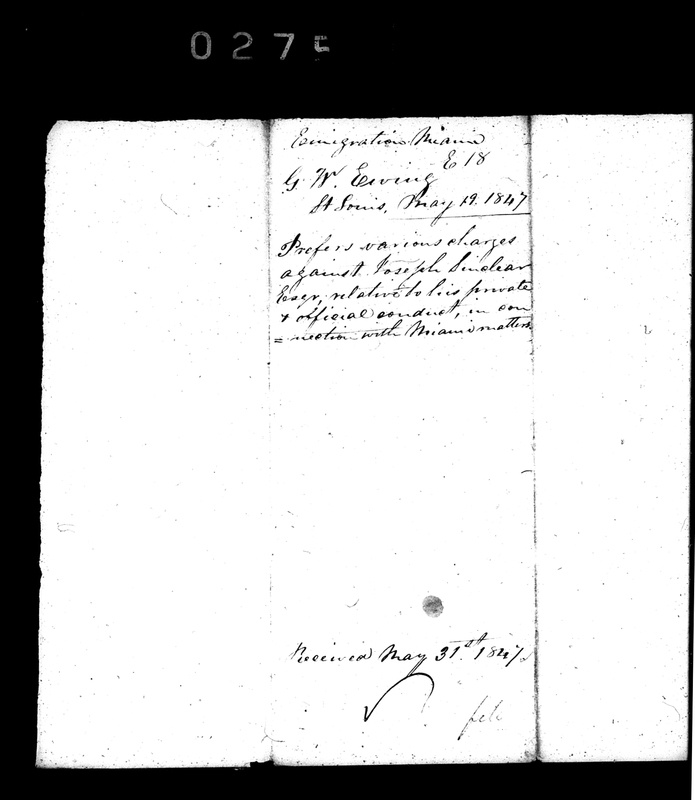 0275
Emigration Miami
E 18
G. W. Ewing
St Louis, May 19. 1847
Prefers various charges
against Joseph Sinclear
Esqr, relative to his private
& official conduct, in con
= nection with Miami matters.
Received May 31st. 1847.